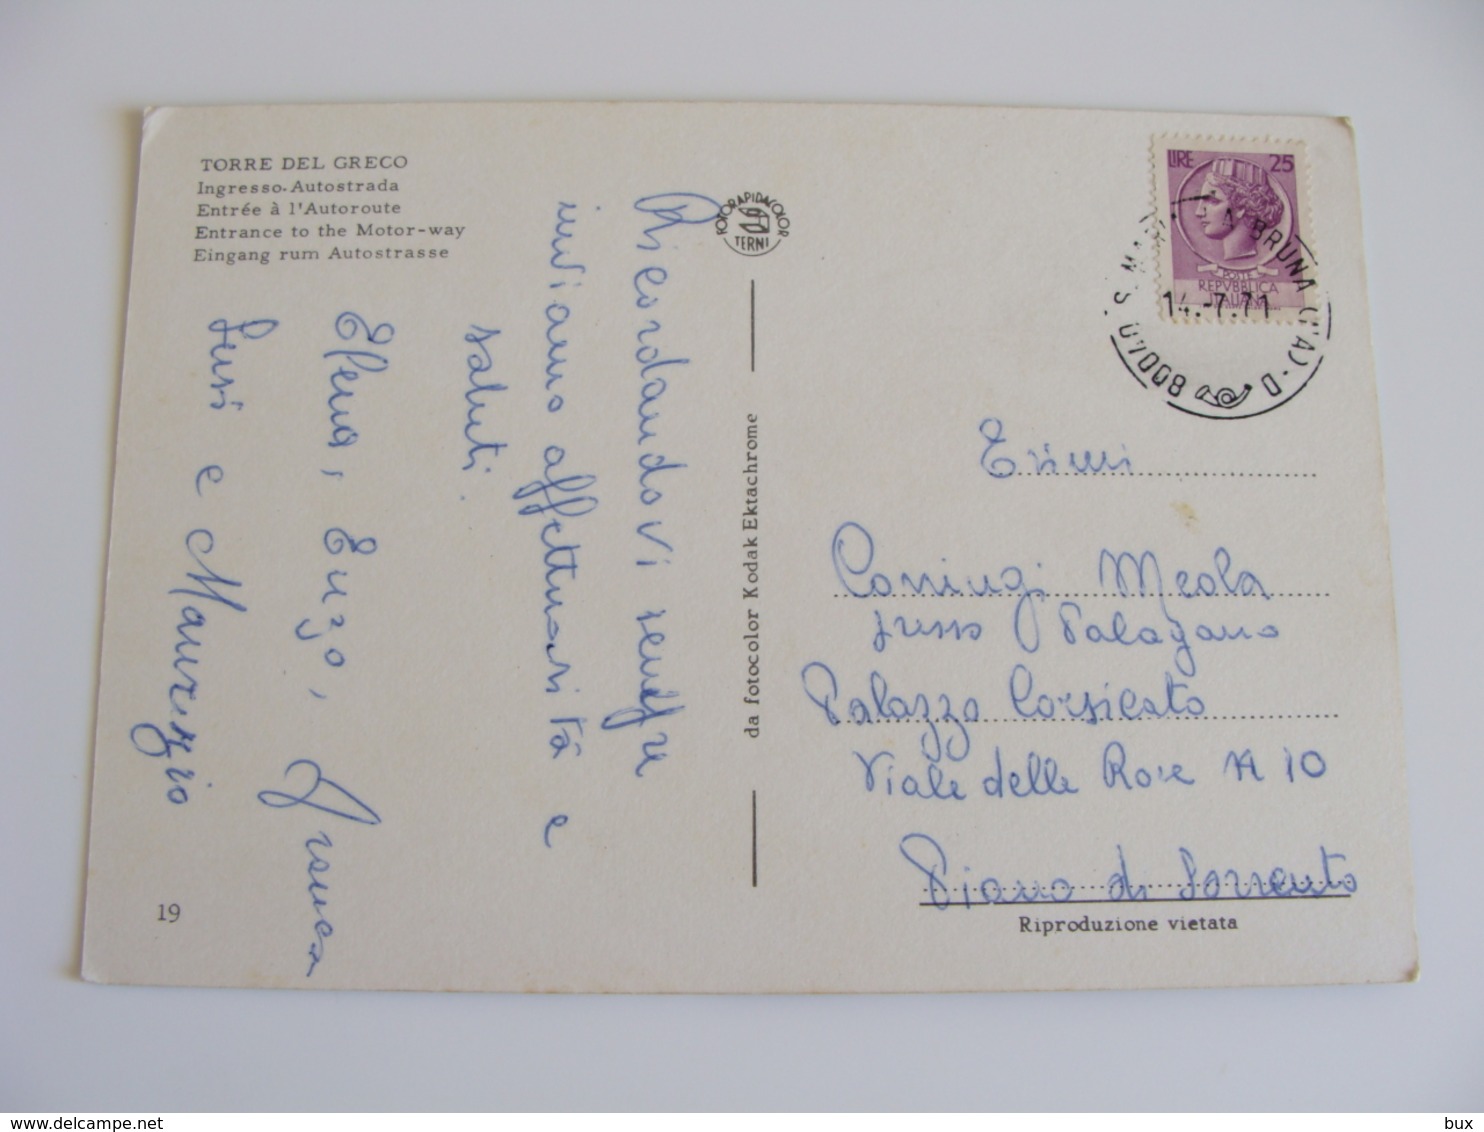 TORRE DEL GRECO
Ingresso-Autostrada
Entrée à l'Autoroute
Entrance to the Motor-way
Eingang rum Autostrasse
Ricordandovi sempre
inviamo affettuosità e
saluti.
Elena, Enzo, Franca
Susi e Maurizio
19
FOTORAPIDACOLOR
TERNI
da fotocolor Kodak Ektachrome
LIRE 25
POSTE
REPVBBLICA
ITALIANA
80040 S. MAR
A BRUNA (NA) - D
14.-7.71
Coniugi Meola
presso Palagano
Palazzo Corsicato
Viale delle Rose N 10
Piano di Sorrento
Riproduzione vietata
bux
www.delcampe.net